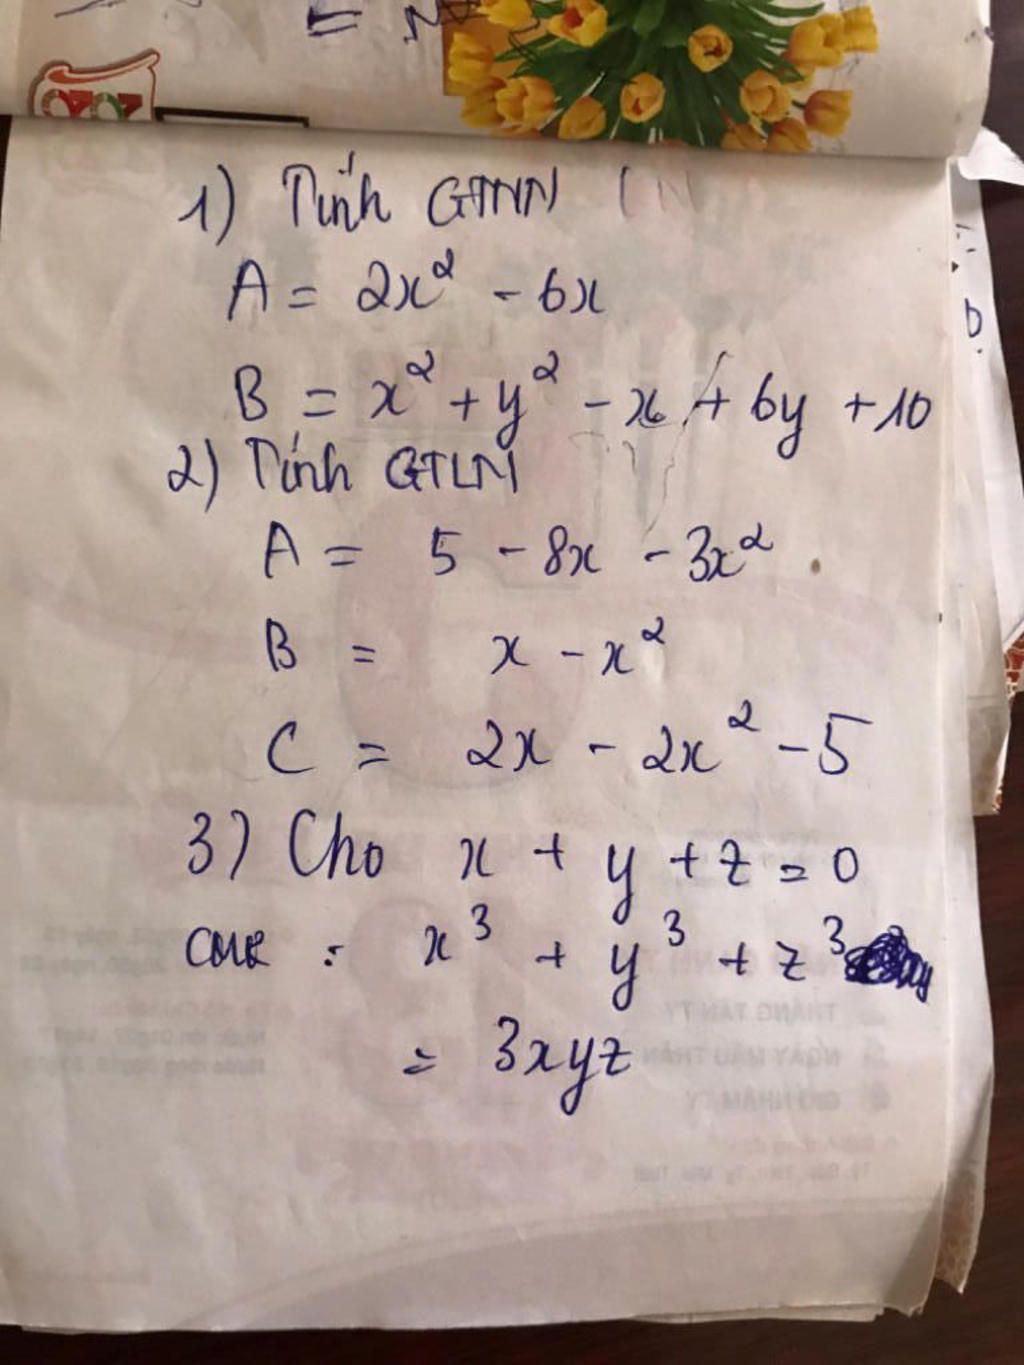 1) Tính GTNN
A = 2x² - 6x
B = x² + y² - x + 6y + 10
2) Tính GTLN
A = 5 - 8x - 3x²
B = x - x²
C = 2x - 2x² - 5
3) Cho x + y + z = 0
CMR : x³ + y³ + z³
= 3xyz